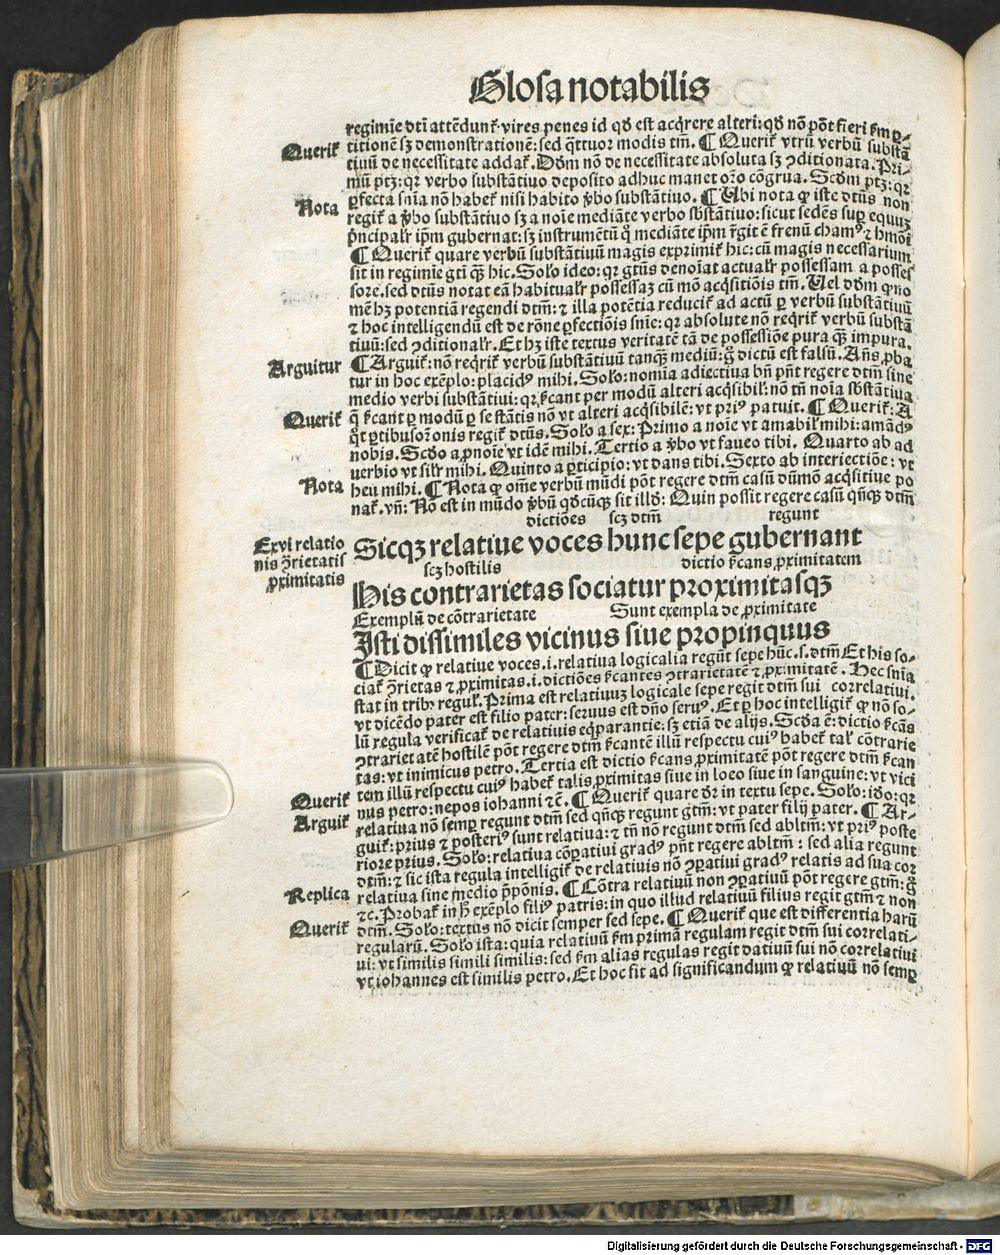 Glosa notabilis
regimīe dt̄i attēdunt᷑ vires penes id qḋ est acq̄rere alteri: qḋ nō pōt fieri ẜm ꝑ-
Querit᷑
titionē sꝫ demonstrationē: sed q̄ttuor modis tm̄. ¶ Querit᷑ vtrū verbū substā
tiuū de necessitate addat᷑. Dōm nō de necessitate absoluta sꝫ ꝯditionata. Pri-
mū ptꝫ: qꝛ verbo substātiuo deposito adhuc manet oꝛ̄o cōgrua. Scḋm ptꝫ: qꝛ
Nota
ꝑfecta sn̄ia nō habet᷑ nisi habito v̄bo substātiuo. ¶ Ubi nota ꝙ iste dt̄us non
regit᷑ a v̄bo substātiuo sꝫ a noīe mediāte verbo sb̄stātiuo: sicut sedēs suꝑ equuꝫ
pn̄cipalr̄ ip̄m gubernat: sꝫ instrumētū q̊ mediāte ip̄m r̄git ē frenū chamꝰ ⁊ hmōi
¶ Querit᷑ quare verbū substātiuū magis exprimit᷑ hic: cū magis necessarium
sit in regimīe gt̄i qꝫ hic. Solo ideo: qꝛ gt̄us denoīat actualr̄ possessam a posses
sore. sed dt̄us notat eā habitualr̄ possessaꝫ cū mō acq̄sitiōis tm̄. Uel dōm ꝙ no
mē hꝫ potentiā regendi dtm̄: ⁊ illa potētia reducit᷑ ad actū ꝑ verbū substātiuū
⁊ hoc intelligendū est de rōne ꝑfectiōis sn̄ie: qꝛ absolute nō req̄rit᷑ verbū substā
tiuū: sed ꝯditionalr̄. Et hꝫ iste textus veritatē tā de possessiōe pura qꝫ impura.
Arguitur
¶ Arguit᷑: nō req̄rit᷑ verbū substātiuū tanqꝫ mediū: g̊ dictū est falsū. An̄s ꝓba
tur in hoc exēplo: placidꝰ mihi. Solo: nomīa adiectiua bn̄ pn̄t regere dtm̄ sine
medio verbi substātiui: qꝛ ẜcant per modū alteri acq̄sibil᷑: nō tn̄ noīa sb̄stātiua
Querit᷑
q̄ ẜcant ꝑ modū ꝑ se stātis nō vt alteri acq̄sibilē: vt priꝰ patuit. ¶ Querit᷑: A
q̊t ꝑtibus oꝛ̄onis regit᷑ dt̄us. Solo a sex: Primo a noīe vt amabil᷑ mihi: amādꝰ
nobis. Scḋo a ꝓnoīe vt idē mihi. Tertio a v̄bo vt faueo tibi. Quarto ab ad
uerbio vt silr̄ mihi. Quinto a ꝑticipio: vt dans tibi. Sexto ab interiectiōe: vt
Nota
heu mihi. ¶ Nota ꝙ om̄e verbū mūdi pōt regere dtm̄ casū dūmō acq̄sitiue po
nat᷑. vn̄: Nō est in mūdo v̄bū qḋcūqꝫ sit illḋ: Quin possit regere casū qn̄qꝫ dtm̄
dictiōes scꝫ dtm̄ regunt
Ex vi relatio
nis ꝯ̄rietatis
ꝓximitatis
Sicqꝫ relatiue voces hunc sepe gubernant
scꝫ hostilis dictio ẜcans ꝓximitatem
His contrarietas sociatur proximitasqꝫ
Exemplū de cōtrarietate Sunt exempla de ꝓximitate
Isti dissimiles vicinus siue propinquus
¶ Dicit ꝙ relatiue voces .i. relatiua logicalia regūt sepe hūc .s. dtm̄ Et his so-
ciat᷑ ꝯ̄rietas ⁊ ꝓximitas .i. dictiōes ẜcantes ꝯtrarietatē ⁊ ꝓximitatē. Hec sn̄ia
stat in tribꝰ regul᷑. Prima est relatiuuꝫ logicale sepe regit dtm̄ sui correlatiui.
vt dicēdo pater est filio pater: seruus est dn̄o seruꝰ. Et ꝑ hoc intelligit᷑ ꝙ nō so-
lū regula verificat᷑ de relatiuis eq̄parantie: sꝫ etiā de alijs. Scḋa ē: dictio ẜcās
ꝯtrarietatē hostilē pōt regere dtm̄ ẜcantē illū respectu cuiꝰ habet᷑ tal᷑ cōtrarie
tas: vt inimicus petro. Tertia est dictio ẜcans ꝓximitatē pōt regere dtm̄ ẜcan
tem illū respectu cuiꝰ habet᷑ talis ꝓximitas siue in loco siue in sanguine: vt vici
Querit᷑
nus petro: nepos iohanni ⁊c̄. ¶ Querit᷑ quare dꝛ in textu sepe. Solo: iḋo: qꝛ
Arguit᷑
relatiua nō semꝑ regunt dtm̄ sed qn̄qꝫ regunt gtm̄: vt pater filij pater. ¶ Ar-
guit᷑: prius ⁊ posteriꝰ sunt relatiua: ⁊ tn̄ nō regunt dtm̄ sed abltm̄: vt priꝰ poste
riore prius. Solo: relatiua cōꝑatiui gradꝰ pn̄t regere abltm̄: sed alia regunt
dtm̄: ⁊ sic ista regula intelligit᷑ de relatiuis nō ꝯꝑatiui gradꝰ relatis ad sua cor
Replica
relatiua sine medio p̄pōnis. ¶ Cōtra relatiuū non ꝯꝑatiuū pōt regere gtm̄: g̊
⁊c. Probat᷑ in h̄ exēplo filiꝰ patris: in quo illud relatiuū filius regit gtm̄ ⁊ non
Querit᷑
dtm̄. Solo: textus nō dicit semper sed sepe. ¶ Querit᷑ que est differentia harū
regularū. Solo ista: quia relatiuū ẜm primā regulam regit dtm̄ sui correlati-
ui: vt similis simili similis: sed ẜm alias regulas regit datiuū sui nō correlatiui
vt iohannes est similis petro. Et hoc fit ad significandum ꝙ relatiuū nō semꝑ
Digitalisierung gefördert durch die Deutsche Forschungsgemeinschaft - DFG